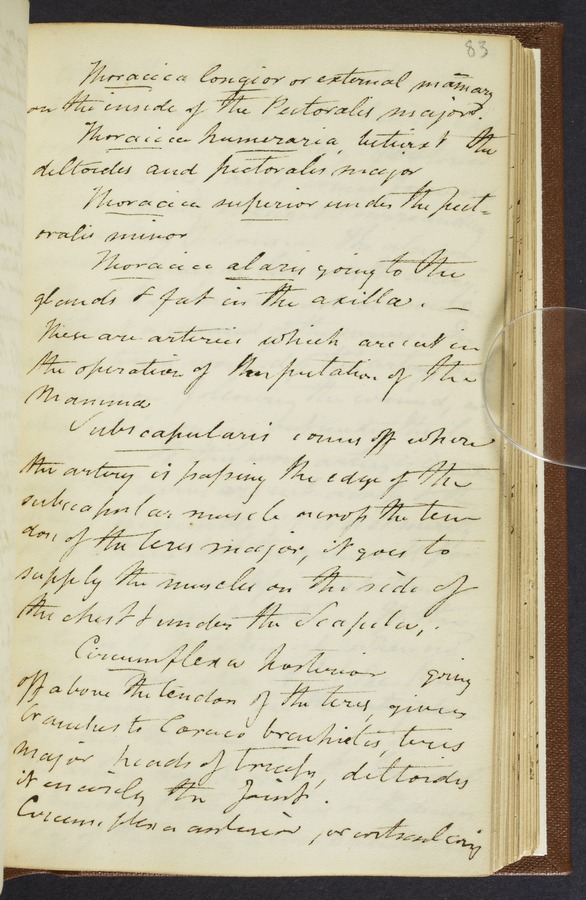 83
Thoracica longior or external mamary
on the inside of the Pectoralis major.
Thoracica humeraria, betwixt the
deltoides and pectoralis major
Thoracica superior under the pect=
oralis minor
Thoracica alaris going to the
glands & fat in the axilla. —
These are arteries which are cut in
the operation of Amputation of the
Mamma
Subscapularis comes off where
the artery is passing the edge of the
subscapular muscle across the ten
don of the teres major, it goes to
supply the muscles on the side of
the chest & under the Scapula,.
Circumflexa posterior going
off above the tendon of the teres, gives
branches to Coraco brachialis, teres
major heads of triceps, deltoides
it encircles the Joint.
Circumflexa anterior, or articularis